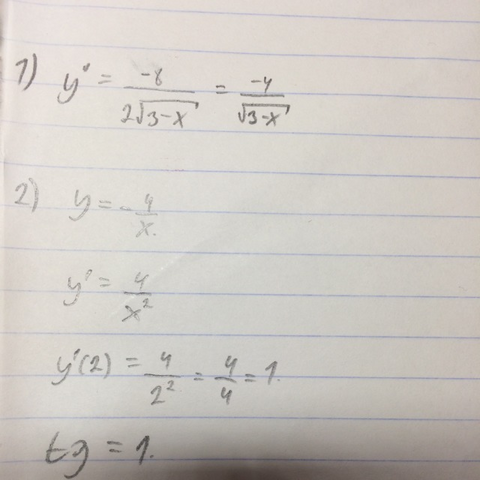 1) y' = -8 / 2√(3-x) = -4 / √(3-x)
2) y = -4/x.
y' = 4/x²
y'(2) = 4/2² = 4/4 = 1.
tg = 1.